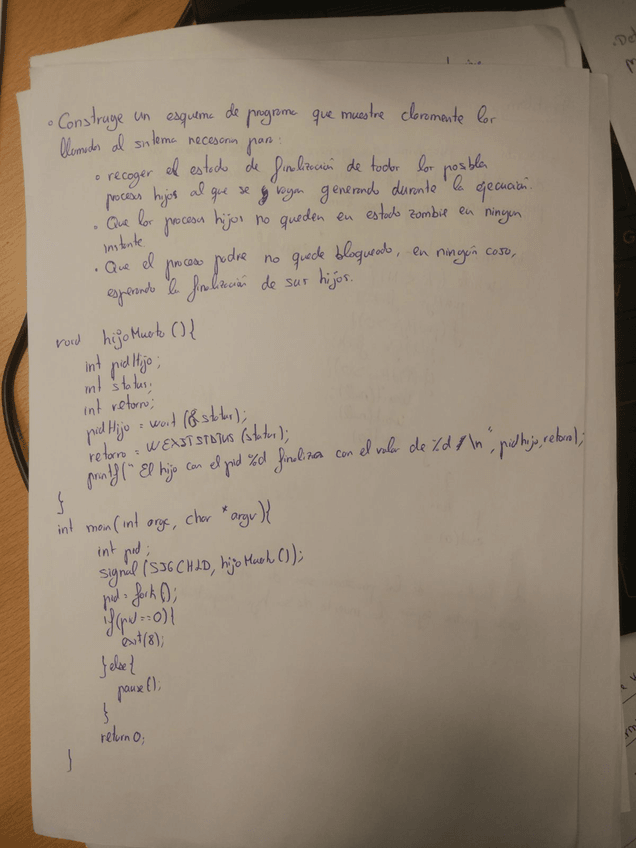 ◦ Construye un esquema de programa que muestre claramente las
llamadas al sistema necesarias para:
◦ recoger el estado de finalización de todos los posibles
procesos hijos al que se vayan generando durante la ejecución.
◦ Que los procesos hijos no queden en estado zombie en ningun
instante.
• Que el proceso padre no quede bloqueado, en ningún caso,
esperando la finalización de sus hijos.
void hijoMuerto(){
int pidHijo;
int status;
int retorno;
pidHijo = wait(&status);
retorno = WEXISTSTATUS(status);
printf("El hijo con el pid %d finaliza con el valor de %d \n", pidhijo, retorno);
}
int main(int argc, char *argv){
int pid;
signal(SIGCHLD, hijoMuerto());
pid = fork();
if(pid==0){
exit(8);
}else{
pause();
}
return 0;
}